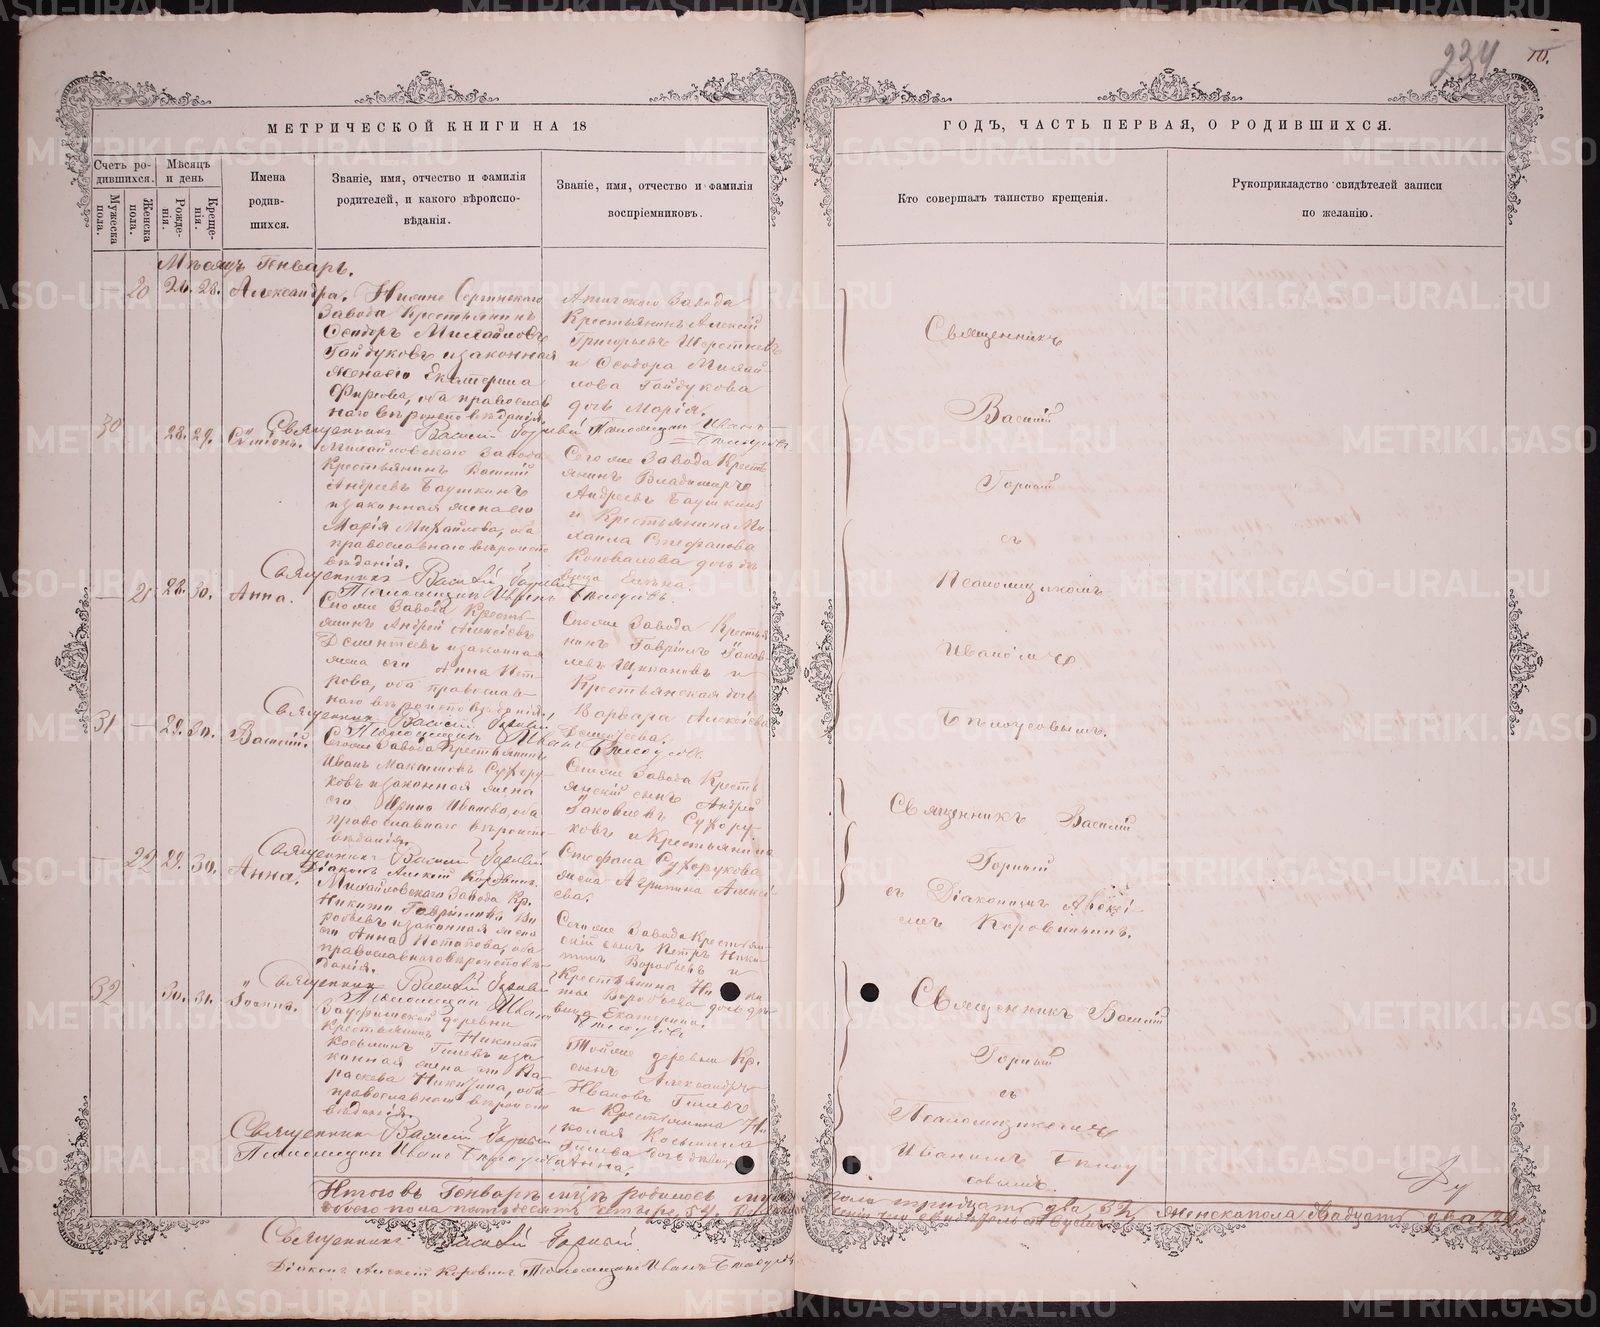 234
10.
МЕТРИЧЕСКОЙ КНИГИ НА 18
ГОДЪ, ЧАСТЬ ПЕРВАЯ, О РОДИВШИХСЯ.
Счетъ ро-
дившихся.
Мужеска
пола.
Женска
пола.
Мѣсяцъ
и день
Рожде-
нія.
Креще-
нія.
Имена
родив-
шихся.
Званіе, имя, отчество и фамилія
родителей, и какого вѣроиспо-
вѣданія.
Званіе, имя, отчество и фамилія
воспріемниковъ.
Кто совершалъ таинство крещенія.
Рукоприкладство свидѣтелей записи
по желанію.
Мѣсяцъ Генварь.
— 20 26. 28. Александра.
Нижне Сергинскаго
Завода Крестьянинъ
Ѳеодоръ Михайловъ
Гайдуковъ и законная
жена его Екатерина
Фирсова, оба православ
наго вѣроисповѣданія.
Атигскаго Завода
Крестьянинъ Алексій
Григорьевъ
и Ѳеодора Михай
лова Гайдукова
дочь Марія.
Священникъ
Василій
Горный
съ
Псаломщикомъ
Иваномъ
Бѣлоусовымъ.
Священникъ Василій Горный Псаломщикъ Иванъ
Бѣлоусовъ
30 28. 29. Симеонъ.
Михайловскаго Завода
Крестьянинъ Василій
Андреевъ Баушкинъ
и законная жена его
Марія Михайлова, оба
православнаго вѣроиспо
вѣданія.
Сего же Завода Кресть
янинъ Владимиръ
Андреевъ Баушкинъ
и Крестьянина Ми-
хаила Стефанова
Коновалова дочь дѣ
вица Елена.
Священникъ Василій Горный
Псаломщикъ Иванъ Бѣлоусовъ.
— 21 28. 30. Анна.
Сего же Завода Кресть-
янинъ Андрей Алексіевъ
Дементьевъ и законная
жена его Анна Пет
рова, оба православ-
наго вѣроисповѣданія.
Сего же Завода Крестья
нинъ Гавріилъ Іаков
левъ и
Крестьянская дочь
Варвара Алексіева
Священникъ Василій Горный
Псаломщикъ Иванъ Бѣлоусовъ
31 — 29. 30. Василій.
Сего же Завода Крестьянинъ
Иванъ Максимовъ Сухору-
ковъ и законная жена
его Ирина Иванова, оба
православнаго вѣроиспо-
вѣданія.
Сего же Завода Кресть
янскій сынъ Андрей
Іаковлевъ Сухору-
ковъ и Крестьянина
Стефана Сухорукова
жена Агрипина Алексі
ева.
Священникъ Василій
Горный
съ Діакономъ Алексі-
емъ Коровинымъ.
Священникъ Василій Горный
Діаконъ Алексій Коровинъ.
— 22 29. 30. Анна.
Михайловскаго Завода Кр.
Никита Гавріиловъ Во
робьевъ и законная жена
его Анна Потапова, оба
православнаго вѣроисповѣ-
данія.
Сего же Завода Крестьян-
скій сынъ Петръ Ники-
тинъ Воробьевъ и
Крестьянина Ни ки
ты Воробьева дочь дѣ-
вица Екатерина.
Священникъ Василій Горный
Псаломщикъ Иванъ Бѣлоусовъ
32 30. 31. Іоанна.
деревни
Крестьянинъ Николай
Косьминъ Гилевъ и за
конная жена его Па-
раскева Никитина, оба
православнаго вѣроиспо
вѣданія.
Той же деревни Кр.
сынъ Александръ
Ивановъ Гилевъ
и Крестьянина Ни
колая Косьмина
Гилева дочь дѣвица
Анна.
Священникъ Василій
Горный
съ
Псаломщикомъ
Иваномъ Бѣлоу
совымъ.
Священникъ Василій Горный
Псаломщикъ Иванъ Бѣлоусовъ
Итого въ Генварѣ м-цѣ родилось муже
ска пола тридцать два, 32, женска пола двадцать два, 22,
обоего пола пятьдесятъ четыре, 54.
Священникъ Василій Горный.
Діаконъ Алексій Коровинъ Псаломщикъ Иванъ Бѣлоусовъ
METRIKI.GASO-URAL.RU